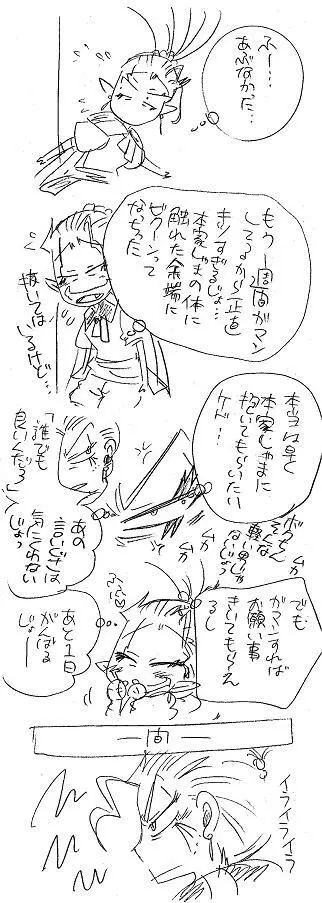 ふー…
あぶなかった…
もう一週間ガマン
してるから正直
キツすぎるじょ…
本家じゃまの体に
触れた途端に
ビクーンって
なっちった
抜いては
いるけど…
本当は早く
本家じゃまに
抱いてもらいたい
ケド…
ボクちん
そんな
軽い男じゃ
ないじょ
ムカ
ムカ
「誰でも
良いんだろ」
あの
言い草は
気にくわない
じょっ
でも
ガマンすれば
お願い事
きいてもらえ
るし
あと1日
がんばる
じょー
一間一
イライライラ